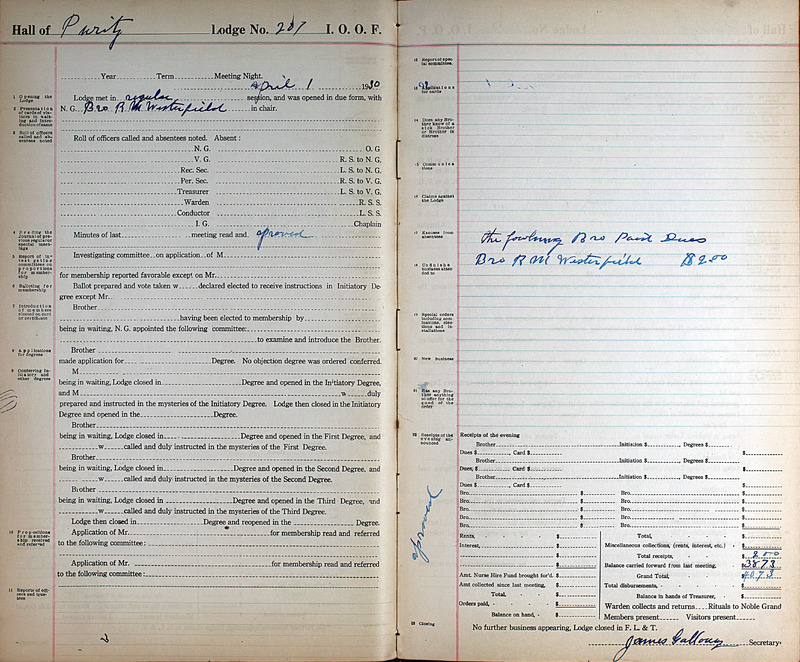 Hall of Purity Lodge No. 207 I. O. O. F.
Year Term Meeting Night.
April 1 1930
1 Opening the Lodge
Lodge met in regular session, and was opened in due form, with
2 Presentation of cards of visitors in waiting and introduction of same
N. G. Bro R M Westerfield in chair.
3 Roll of officers called and absentees noted
Roll of officers called and absentees noted. Absent:
N. G. O. G
V. G. R. S. to N. G.
Rec. Sec. L. S. to N. G.
Per. Sec. R. S. to V. G.
Treasurer L. S. to V. G.
Warden R. S. S.
Conductor L. S. S.
I. G. Chaplain
4 Reading the Journal of previous regular or special meetings
Minutes of last meeting read and aproved
5 Report of investigating committees on propositions for membership
Investigating committee on application of M
for membership reported favorable except on Mr.
6 Balloting for membership
Ballot prepared and vote taken w declared elected to receive instructions in Initiatory De-
gree except Mr.
7 Introduction of members elected on card or certificate
Brother
having been elected to membership by
being in waiting, N. G. appointed the following committee:
to examine and introduce the Brother.
8 Applications for degrees
Brother
made application for Degree. No objection degree was ordered conferred.
9 Conferring Initiatory and other degrees
M
being in waiting, Lodge closed in Degree and opened in the Initiatory Degree,
and M w duly
prepared and instructed in the mysteries of the Initiatory Degree. Lodge then closed in the Initiatory
Degree and opened in the Degree.
Brother
being in waiting, Lodge closed in Degree and opened in the First Degree, and
w called and duly instructed in the mysteries of the First Degree.
Brother
being in waiting, Lodge closed in Degree and opened in the Second Degree, and
w called and duly instructed in the mysteries of the Second Degree.
Brother
being in waiting, Lodge closed in Degree and opened in the Third Degree, and
w called and duly instructed in the mysteries of the Third Degree.
Lodge then closed in Degree and reopened in the Degree.
10 Propositions for membership received and referred
Application of Mr. for membership read and referred
to the following committee:
Application of Mr. for membership read and referred
to the following committee:
11 Reports of officers and trustees
12 Report of special committee.
13 Applications for cards
14 Does any Brother know of a sick Brother or Brother in distress
15 Communications
16 Claims against the Lodge
17 Excuses from absentees
the fowlning Bro Paid Dues
18 Unfinished business attended to
Bro R M Westerfield $2.00
19 Special orders including nominations, elections and installations
20 New business
21 Has any Brother anything to offer for the good of the order
22 Receipts of the evening announced
Receipts of the evening
Brother Initiation $ Degrees $
Dues $ Card $ $
Brother Initiation $ Degrees $
Dues, $ Card $ $
Brother Initiation $ Degrees $
Dues $ Card $ $
Bro. $ Bro. $
Bro. $ Bro. $
Bro. $ Bro. $
Bro. $ Bro. $
Bro. $ Bro. $
aproved
Rents, $ Total, $
Interest, $ Miscellaneous collections, (rents, interest, etc.) $
Total receipts, $ 2.00
$ Balance carried forward from last meeting, $ 38 73
Amt. Nurse Hire Fund brought for'd. $ Grand Total, $ 40 73
Amt collected since last meeting, $ Total disbursements, $
Total, $ Balance in hands of Treasurer, $
Orders paid, $ Warden collects and returns Rituals to Noble Grand
Balance on hand, $ Members present Visitors present
23 Closing
No further business appearing, Lodge closed in F. L. & T.
James Galloway Secretary.